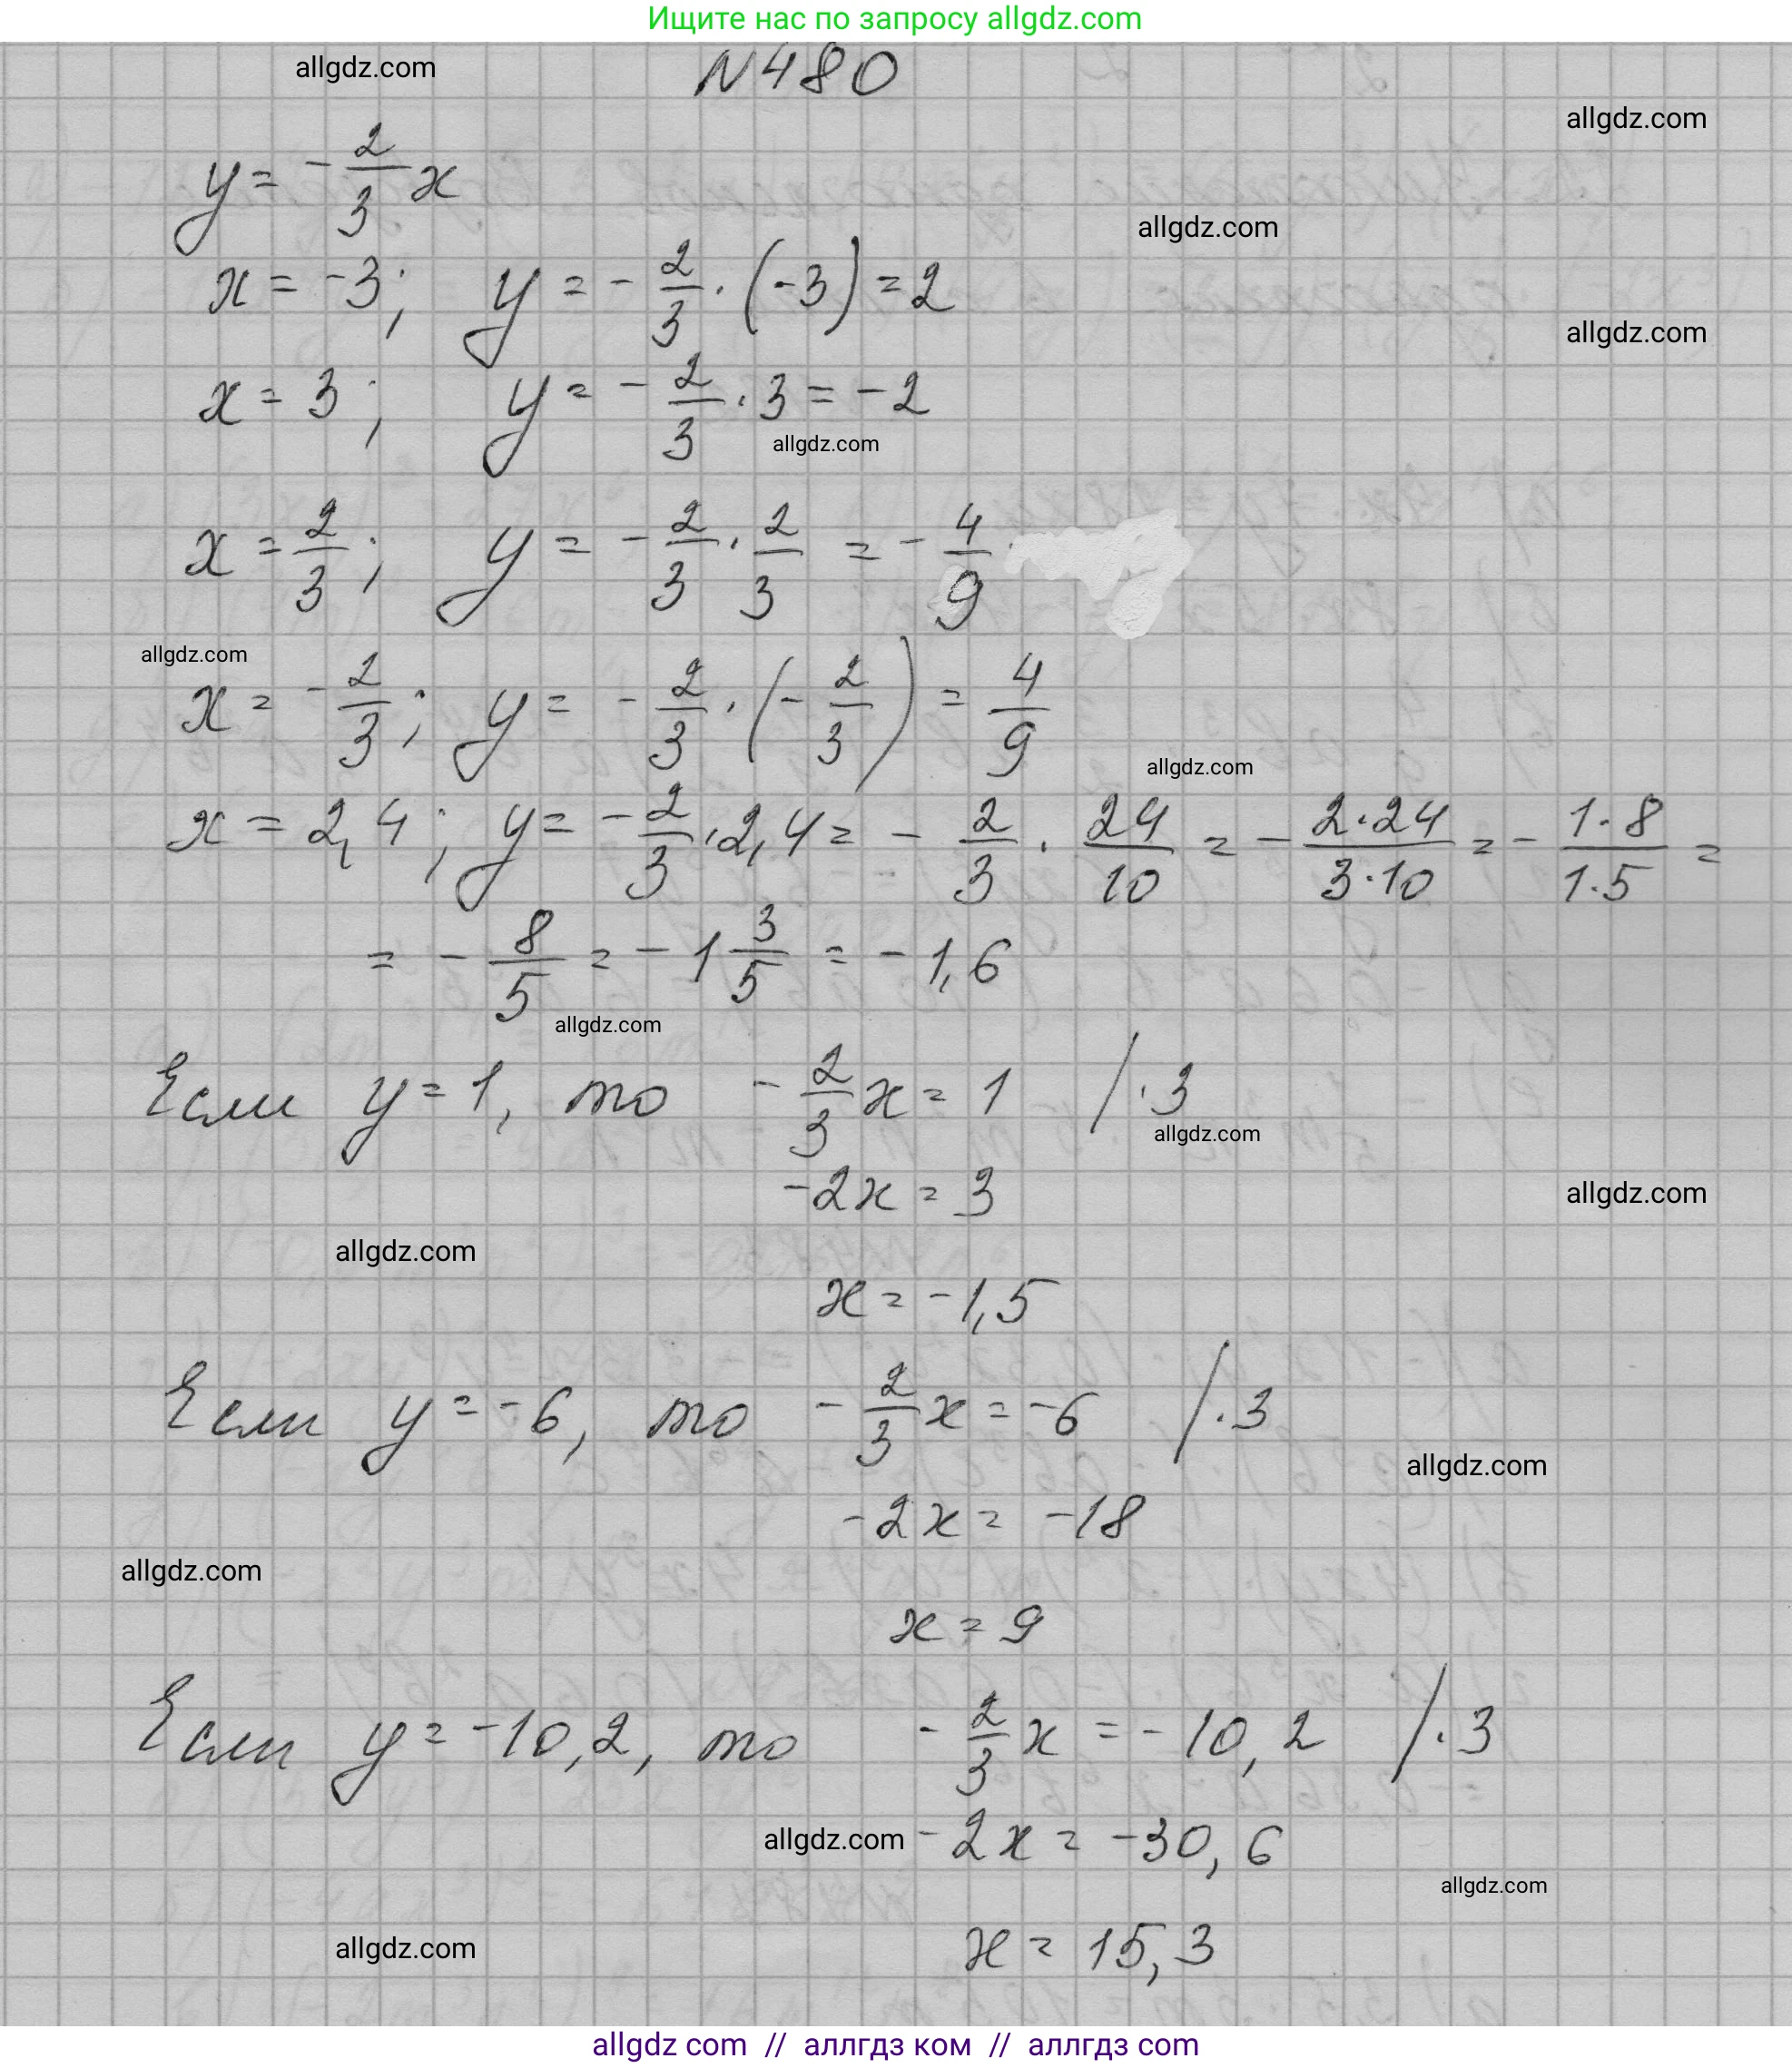 Ищите нас по запросу allgdz.com
allgdz.com
N480
allgdz.com
y = -2/3 x
allgdz.com
x = -3; y = -2/3 · (-3) = 2
allgdz.com
x = 3; y = -2/3 · 3 = -2
allgdz.com
x = 2/3; y = -2/3 · 2/3 = -4/9
allgdz.com
x = -2/3; y = -2/3 · (-2/3) = 4/9
allgdz.com
x = 2,4; y = -2/3 · 2,4 = -2/3 · 24/10 = -2·24/3·10 = -1·8/1·5 =
= -8/5 = -1 3/5 = -1,6
allgdz.com
Если y = 1, то -2/3 x = 1 /·3
allgdz.com
-2x = 3
allgdz.com
allgdz.com
x = -1,5
Если y = -6, то -2/3 x = -6 /·3
allgdz.com
-2x = -18
allgdz.com
x = 9
Если y = -10,2, то -2/3 x = -10,2 /·3
allgdz.com
-2x = -30,6
allgdz.com
allgdz.com
x = 15,3
allgdz com // аллгдз ком // аллгдз com